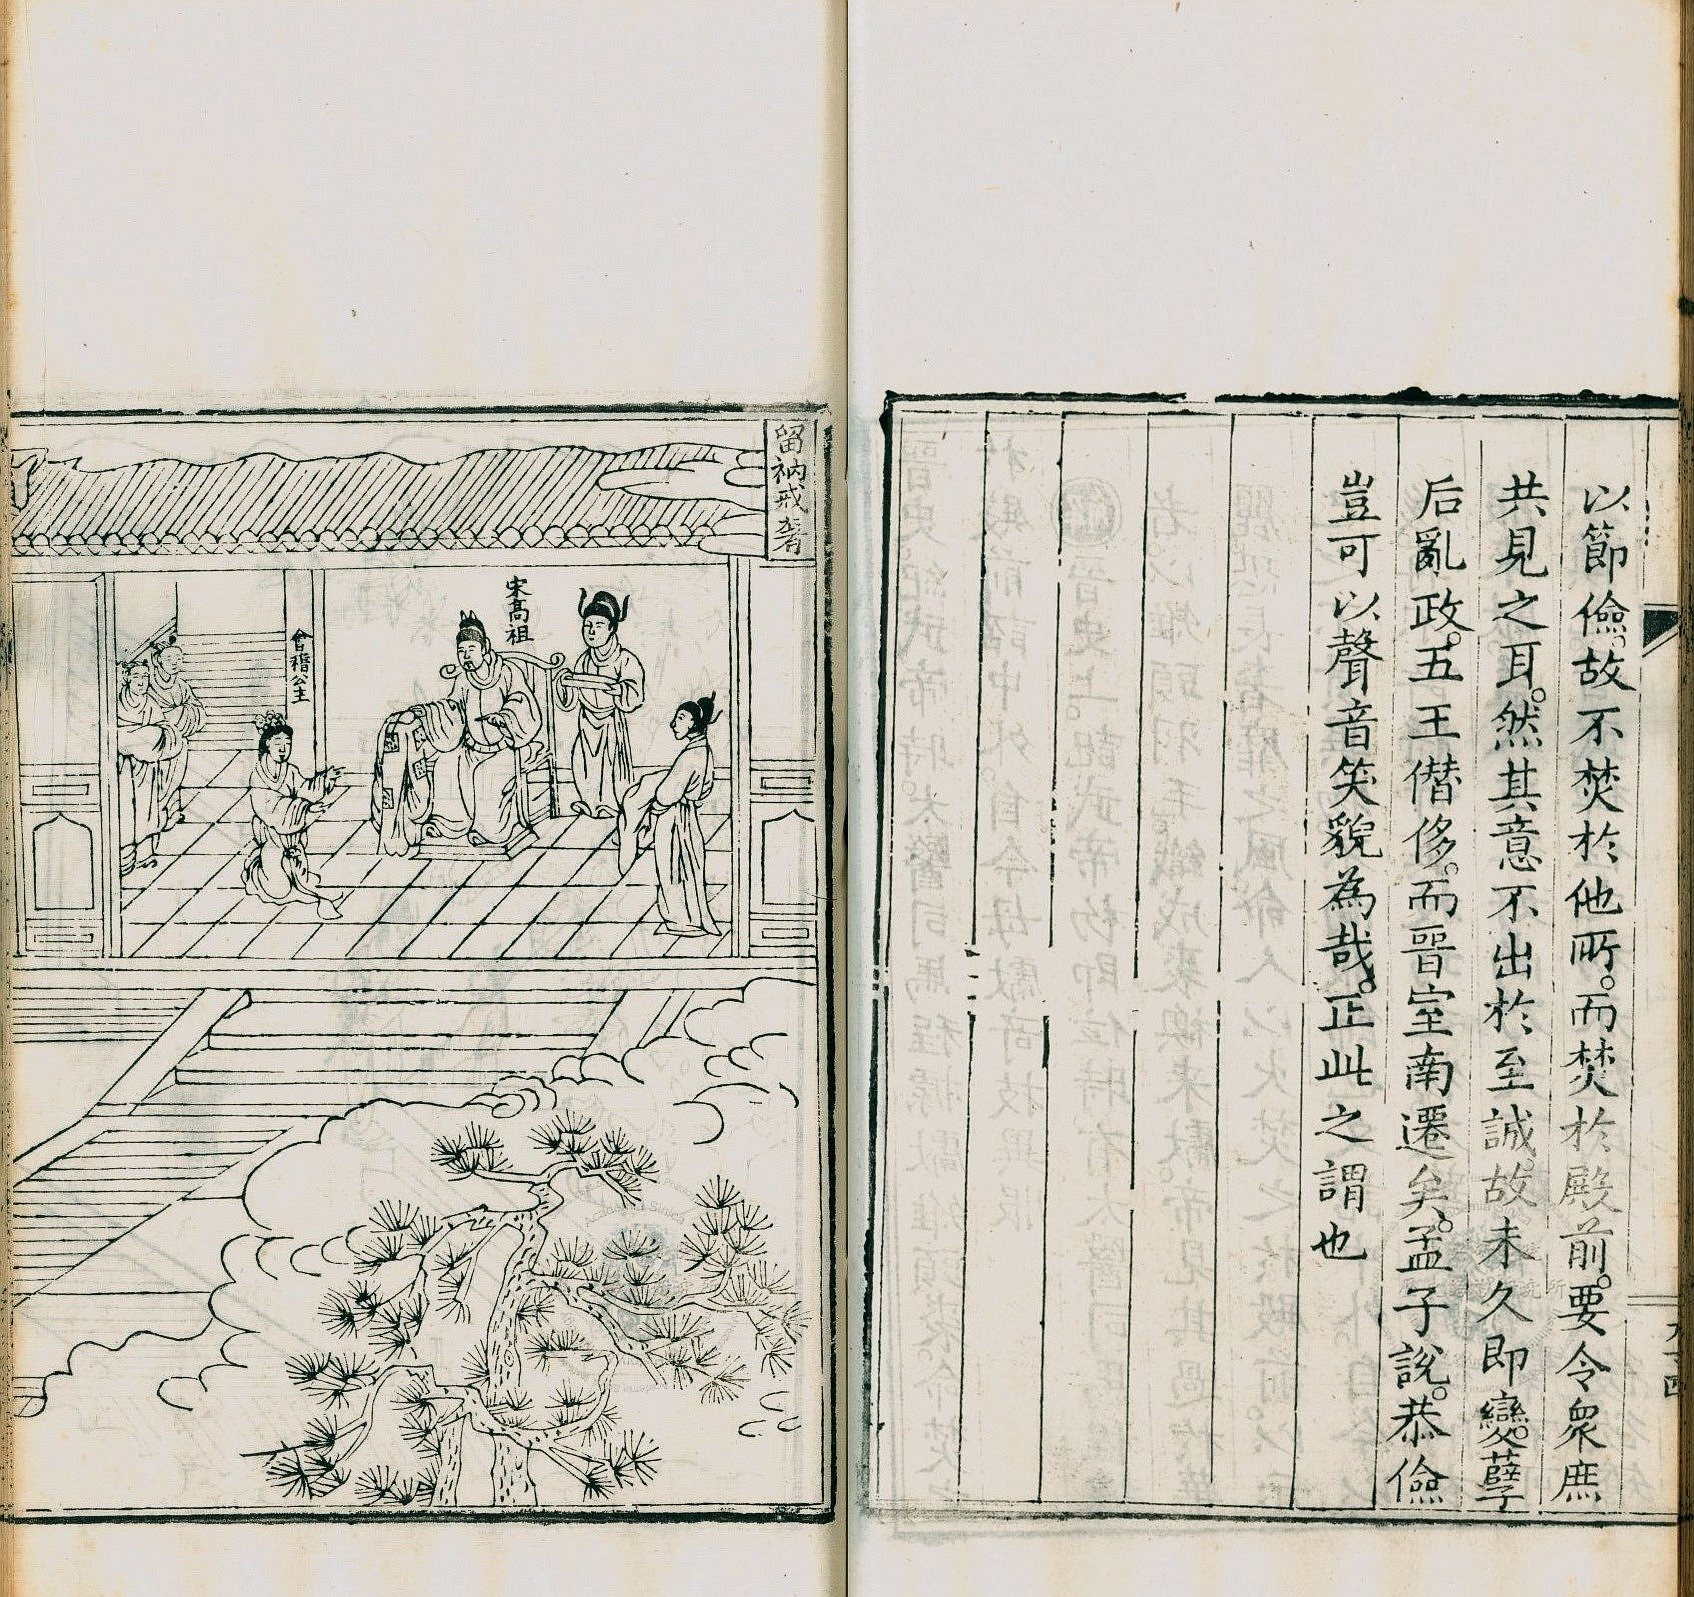 以節儉。故不焚於他所。而焚於殿前。要令衆庶
共見之耳。然其意不出於至誠。故未久即變。孽
后亂政。五王僭侈。而晉室南遷矣。孟子說。恭儉
豈可以聲音笑貌為哉。正此之謂也
留衲戒奢
宋高祖
會稽公主